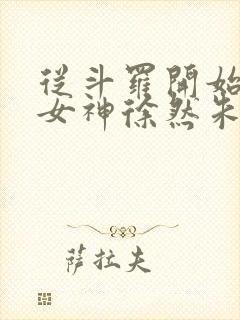 從斗羅開始
女神徐然朱
薩拉夫